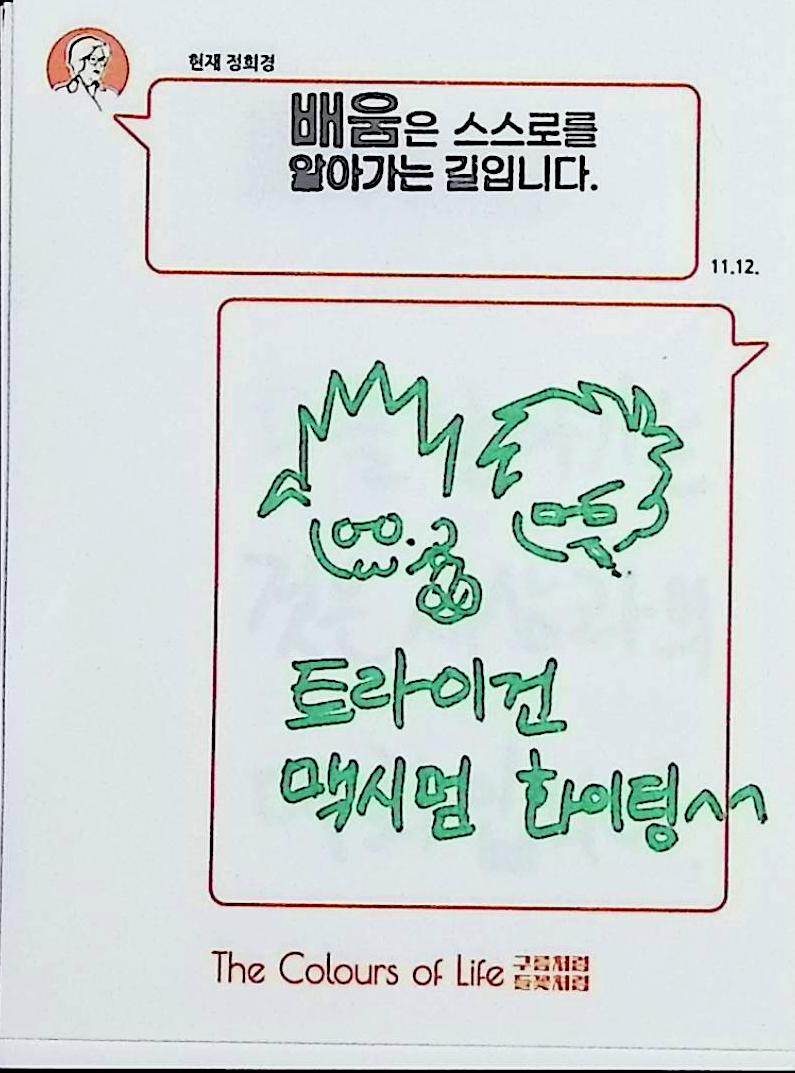 현재 정희경
배움은 스스로를
알아가는 길입니다.
11.12.
트라이건
맥시멈 화이팅^^
The Colours of Life 구름처럼
들꽃처럼